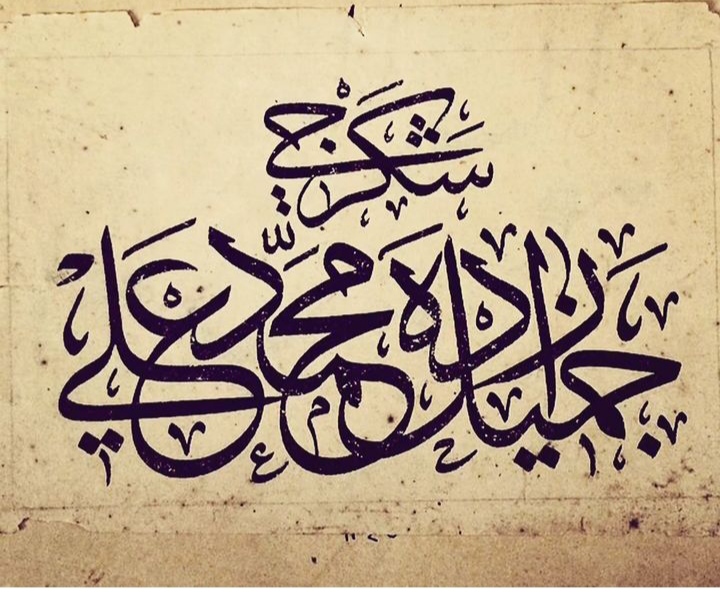 شكرجي
جميل زاده محمد علي